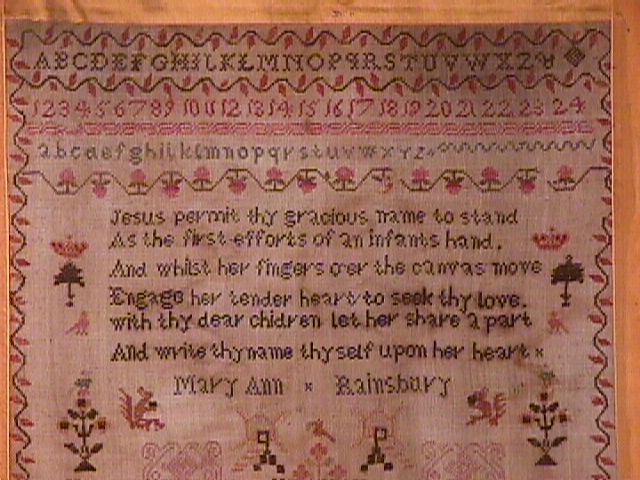 ABCDEFGHILKLMNOPQRSTUVWXZ
1234567891011121314151617181920212223 24
abcdefghiklmnopqrstuvwxyz
Jesus permit thy gracious name to stand
As the first efforts of an infants hand.
And whilst her fingers o'er the canvas move
Engage her tender heart to seek thy love.
with thy dear chidren let her share a part
And write thy name thyself upon her heart ×
Mary Ann × Rainsbury